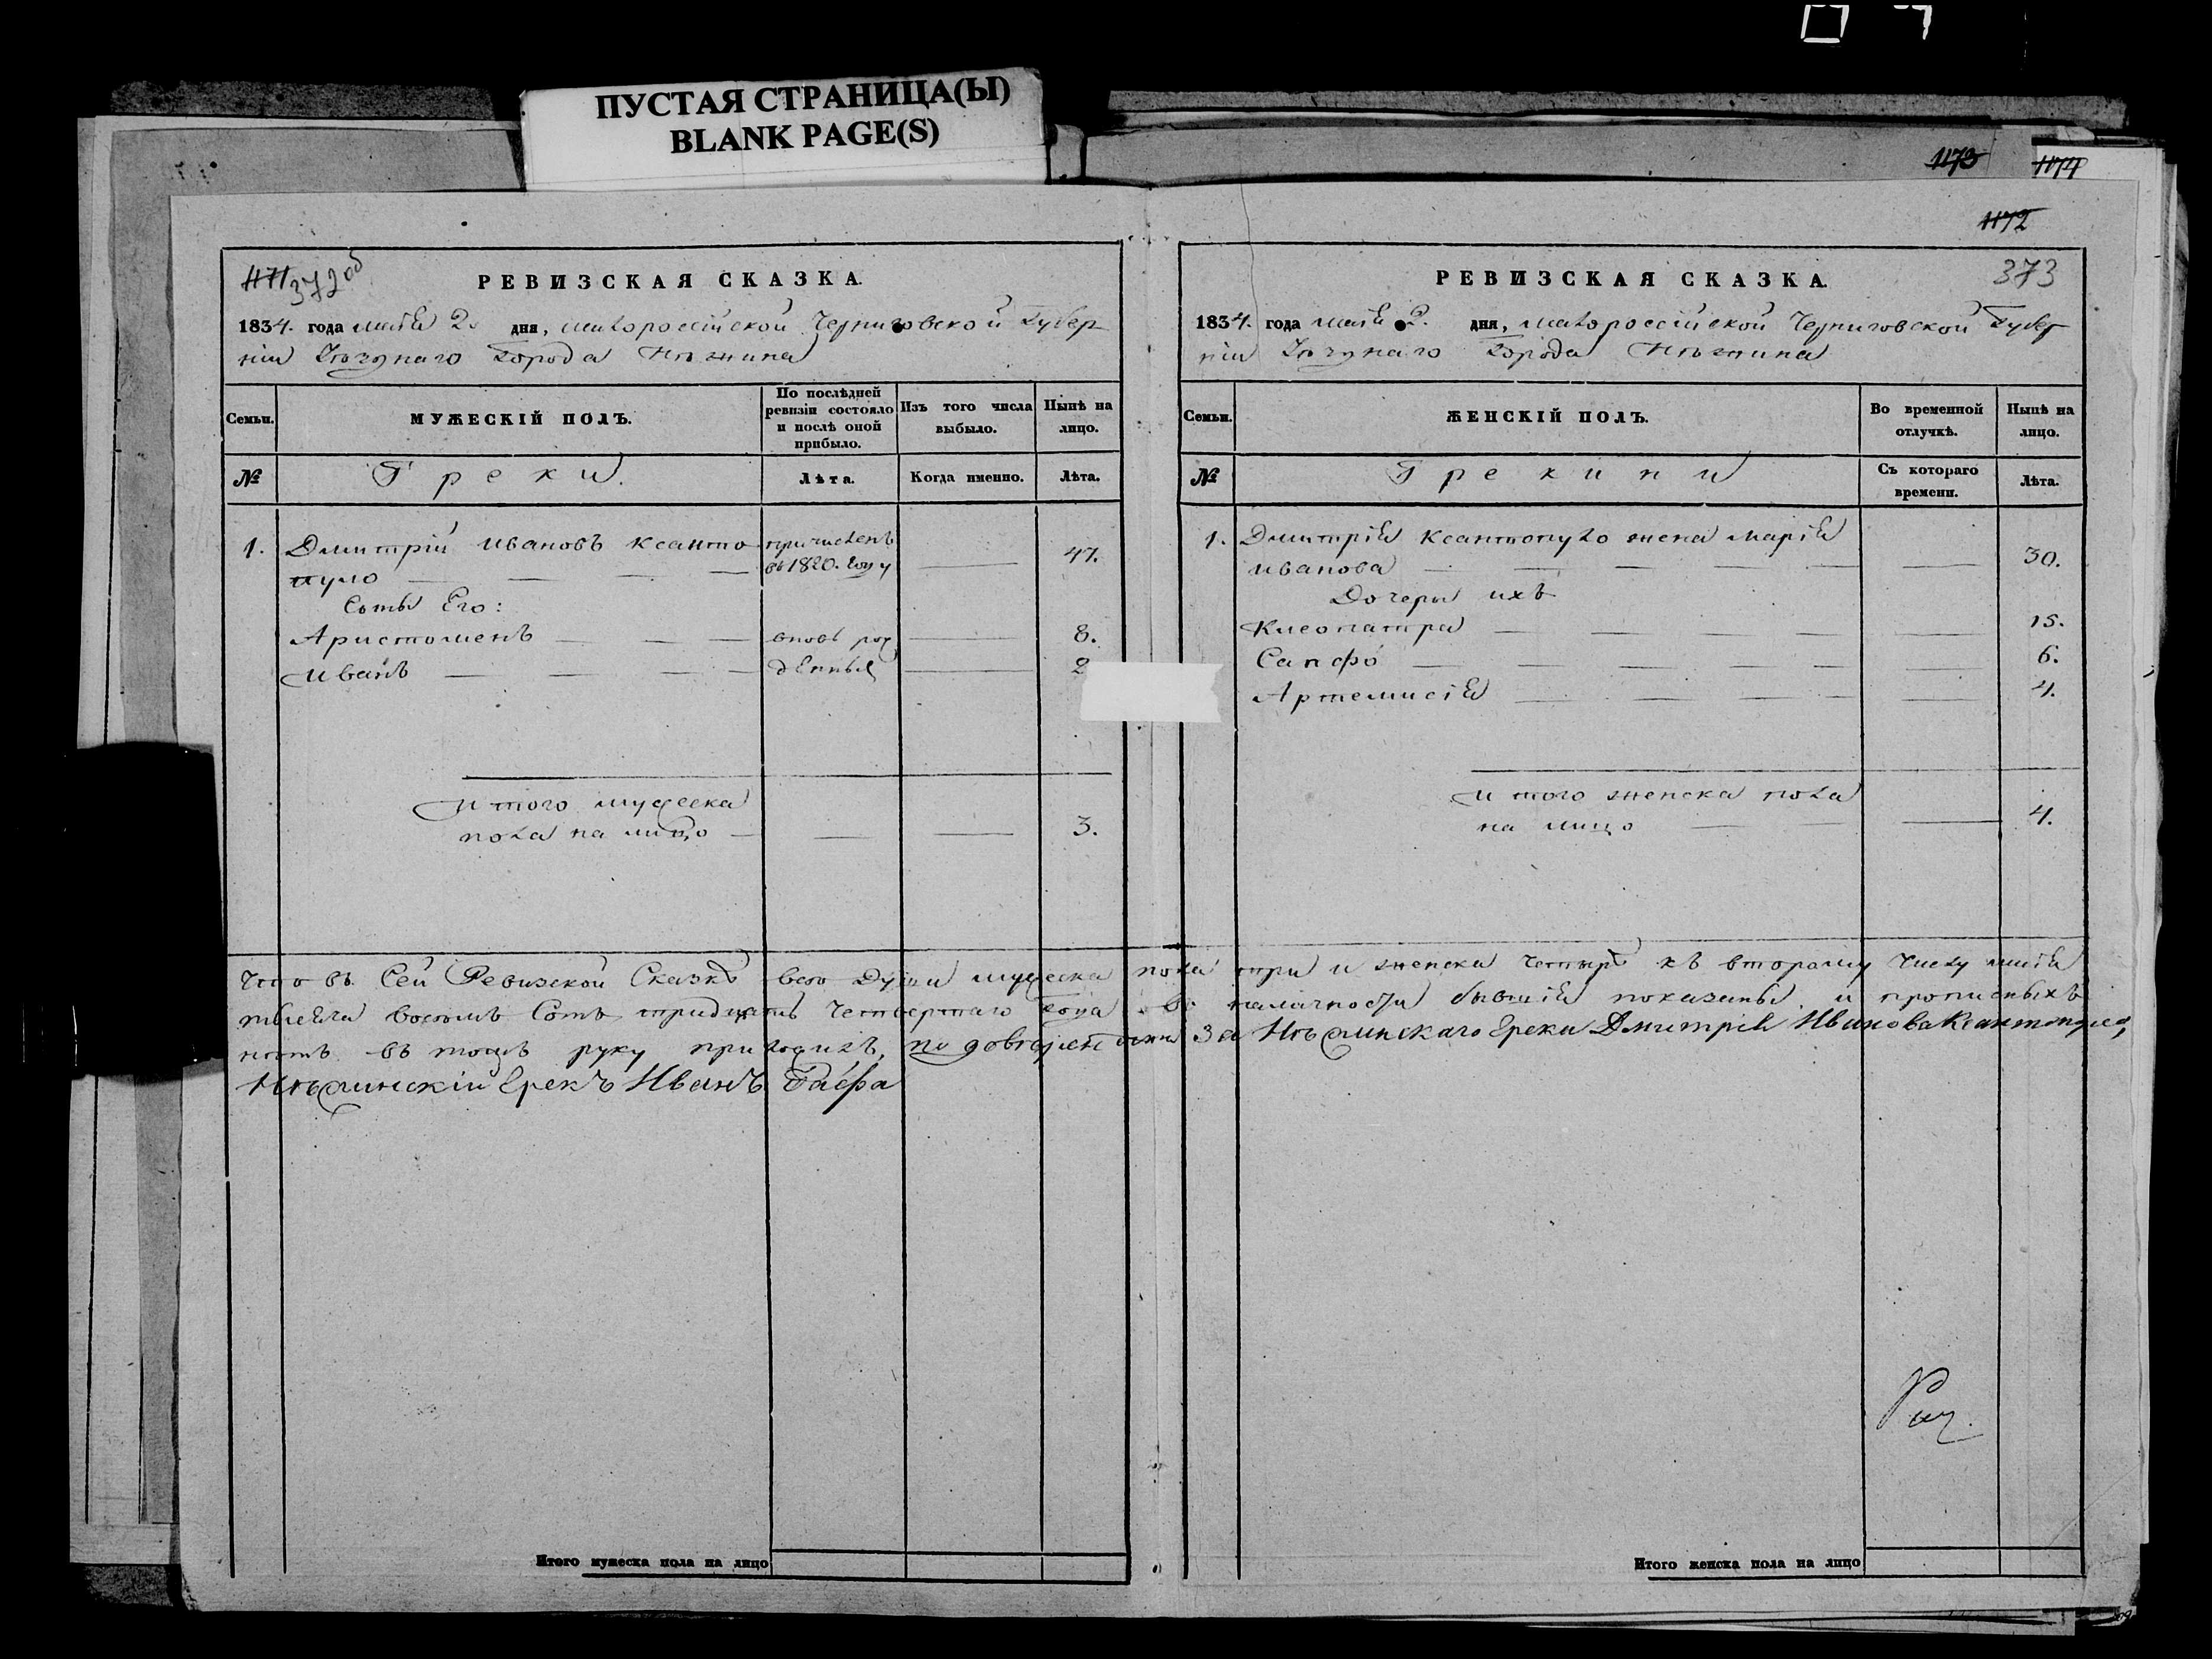 ПУСТАЯ СТРАНИЦА(Ы)
BLANK PAGE(S)
1173
1174
1172
1171
372 об
РЕВИЗСКАЯ СКАЗКА.
1834. года маія 2. дня, малороссійской Черниговской Губер
ніи уѣзднаго города Нѣжина
Семьи.
МУЖЕСКІЙ ПОЛЪ.
По послѣдней ревизіи состояло и послѣ оной прибыло.
Изъ того числа выбыло.
Нынѣ на лицо.
№
Греки.
Лѣта.
Когда именно.
Лѣта.
1. Дмитрій Ивановъ Ксанто причисленъ
пуло въ 1820. году 47.
Сыны Его:
Аристоменъ вновь рож 8.
Иванъ денныя 2
И того мужеска
пола на лицо 3.
373
РЕВИЗСКАЯ СКАЗКА.
1834. года маія 2. дня, малороссійской Черниговской Губер
ніи уѣзднаго города Нѣжина
Семьи.
ЖЕНСКІЙ ПОЛЪ.
Во временной отлучкѣ.
Нынѣ на лицо.
№
Грекини
Съ котораго времени.
Лѣта.
1. Дмитрія Ксантопуло жена Марія
Иванова 30.
Дочери ихъ
Клеопатра 15.
Сапфо 6.
Артемисія 4.
И того женска пола
на лицо 4.
Что въ Сей Ревизской Сказкѣ всѣ души мужеска пола три и женска четыри къ второму числу маія
тысяча восемъ Сотъ тридцать четвертаго года въ наличности бывшія показаны и прописныхъ
нѣтъ въ томъ руку приложилъ, по довѣренности За Нѣжинскаго Грека Дмитрія Иванова Ксантопуло,
Нѣжинскій Грекъ Иванъ Бафа
Итого мужеска пола на лицо
Итого женска пола на лицо